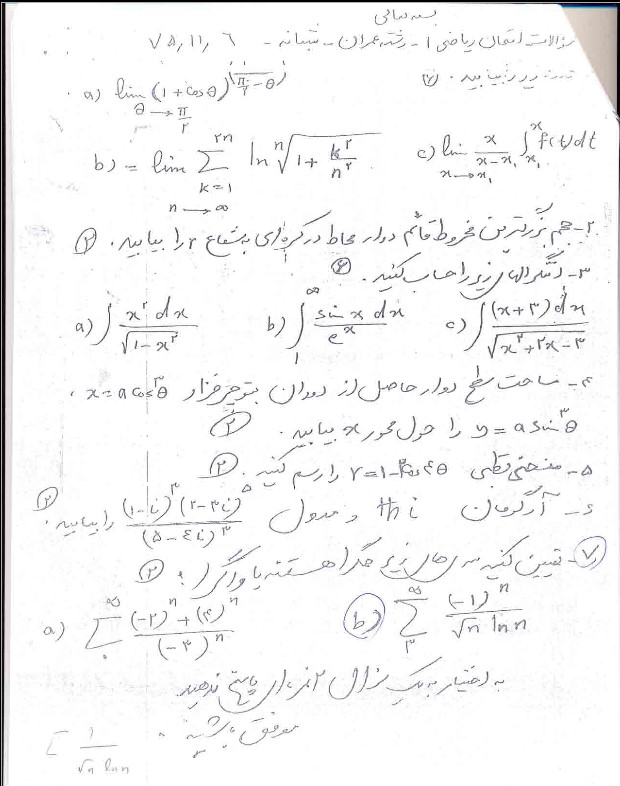 بسمه تعالی
سوالات امتحان ریاضی 1 - رشته عمران - شبانه - ۷۵,۱۱,۶
حدود زیر را بیابید. ②
a) lim_{θ→π/۲} (1+cosθ)^{(1/(π/۲-θ))}
b) = lim_{n→∞} Σ_{k=1}^{۲n} ln ⁿ√(1+k²/n²) c) lim_{x→x₁} x/(x-x₁) ∫_{x₁}^{x} f(t)dt
۲- حجم بزرگترین مخروط قائم دوار محاط در کره ای به شعاع r را بیابید. ②
۳- انتگرالهای زیر را حساب کنید.
a) ∫ x² dx/√(1-x²) b) ∫_{1}^{∞} sin x dx/e^x c) ∫ (x+۳)dx/√(x²+۲x-۳)
۴- مساحت سطح دوار حاصل از دوران x = a cos³θ ,
y = a sin³θ را حول محور x بیابید. ②
۵- منحنی قطبی را رسم کنید. ②
۶- آرگومان th i و مدول (1-i)³(۲-۳i)⁵/(۵-۴i)³ را بیابید. ②
۷- تعیین کنید سری های زیر همگرا هستند یا واگرا؟ ②
a) Σ^{∞} ((-۲)ⁿ+(۴)ⁿ)/(-۳)ⁿ b) Σ_{۳}^{∞} (-1)ⁿ/(√n ln n)
به اختیار به یک سوال ۲ نمره ای پاسخ ندهید
موفق باشید.
Σ 1/(√n ln n)